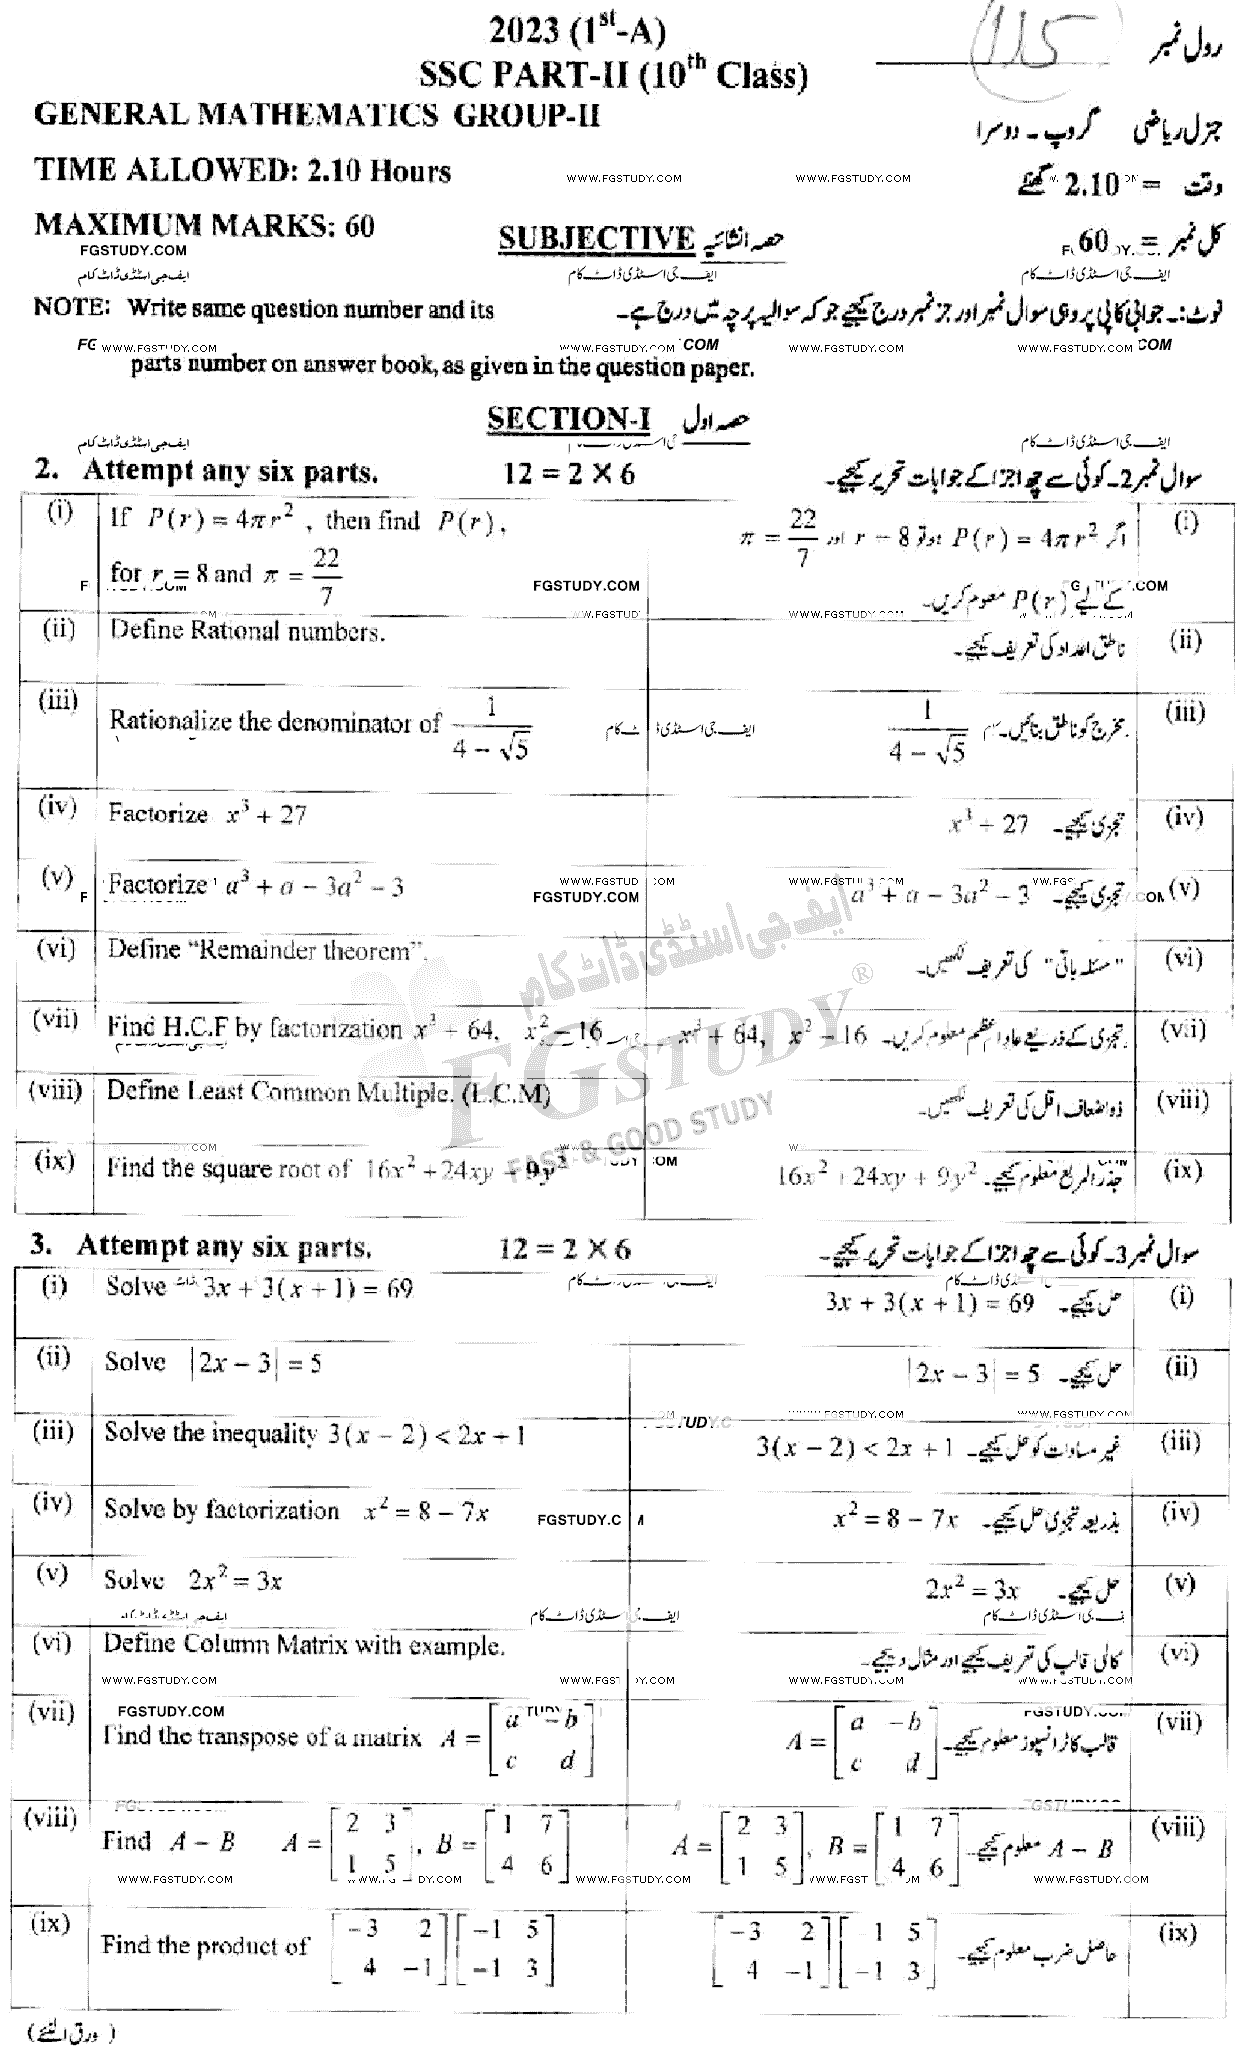 2023 (1st-A)
رول نمبر 115
SSC PART-II (10th Class)
GENERAL MATHEMATICS GROUP-II
جنرل ریاضی گروپ - دوسرا
TIME ALLOWED: 2.10 Hours
وقت = 2.10 گھنٹے
MAXIMUM MARKS: 60
کل نمبر = 60
SUBJECTIVE حصہ انشائیہ
NOTE: Write same question number and its
parts number on answer book, as given in the question paper.
نوٹ:۔ جوابی کاپی پر وہی سوال نمبر اور جز نمبر درج کیجیے جو کہ سوالیہ پرچہ میں درج ہے۔
SECTION-I حصہ اول
2. Attempt any six parts. 12 = 2 × 6 سوال نمبر 2۔ کوئی سے چھ اجزا کے جوابات تحریر کیجیے۔
(i) If P(r) = 4πr², then find P(r),
for r = 8 and π = 22/7
اگر P(r) = 4πr² ہو تو r = 8 اور π = 22/7 (i)
کے لیے P(r) معلوم کریں۔
(ii) Define Rational numbers.
ناطق اعداد کی تعریف کیجیے۔ (ii)
(iii) Rationalize the denominator of 1/(4 − √5)
مخرج کو ناطق بنائیں۔ 1/(4 − √5) (iii)
(iv) Factorize x³ + 27
تجزی کیجیے۔ x³ + 27 (iv)
(v) Factorize a³ + a − 3a² − 3
تجزی کیجیے۔ a³ + a − 3a² − 3 (v)
(vi) Define “Remainder theorem”.
"مسئلہ باقی" کی تعریف لکھیں۔ (vi)
(vii) Find H.C.F by factorization x³ + 64, x² − 16
تجزی کے ذریعے عاد اعظم معلوم کریں۔ x³ + 64, x² − 16 (vii)
(viii) Define Least Common Multiple. (L.C.M)
ذواضعاف اقل کی تعریف لکھیں۔ (viii)
(ix) Find the square root of 16x² + 24xy + 9y²
جذر المربع معلوم کیجیے۔ 16x² + 24xy + 9y² (ix)
3. Attempt any six parts. 12 = 2 × 6 سوال نمبر 3۔ کوئی سے چھ اجزا کے جوابات تحریر کیجیے۔
(i) Solve 3x + 3(x + 1) = 69
حل کیجیے۔ 3x + 3(x + 1) = 69 (i)
(ii) Solve |2x − 3| = 5
حل کیجیے۔ |2x − 3| = 5 (ii)
(iii) Solve the inequality 3(x − 2) < 2x + 1
غیر مساوات کو حل کیجیے۔ 3(x − 2) < 2x + 1 (iii)
(iv) Solve by factorization x² = 8 − 7x
بذریعہ تجزی حل کیجیے۔ x² = 8 − 7x (iv)
(v) Solve 2x² = 3x
حل کیجیے۔ 2x² = 3x (v)
(vi) Define Column Matrix with example.
کالمی قالب کی تعریف کیجیے اور مثال دیجیے۔ (vi)
(vii) Find the transpose of a matrix A = [a −b; c d]
قالب کا ٹرانسپوز معلوم کیجیے۔ A = [a −b; c d] (vii)
(viii) Find A − B A = [2 3; 1 5], B = [1 7; 4 6]
A − B معلوم کیجیے۔ A = [2 3; 1 5], B = [1 7; 4 6] (viii)
(ix) Find the product of [−3 2; 4 −1] [−1 5; −1 3]
حاصل ضرب معلوم کیجیے۔ [−3 2; 4 −1] [1 5; −1 3] (ix)
(ورق الٹئے)
ایف جی اسٹڈی ڈاٹ کام
FGSTUDY®
FAST & GOOD STUDY
WWW.FGSTUDY.COM
FGSTUDY.COM